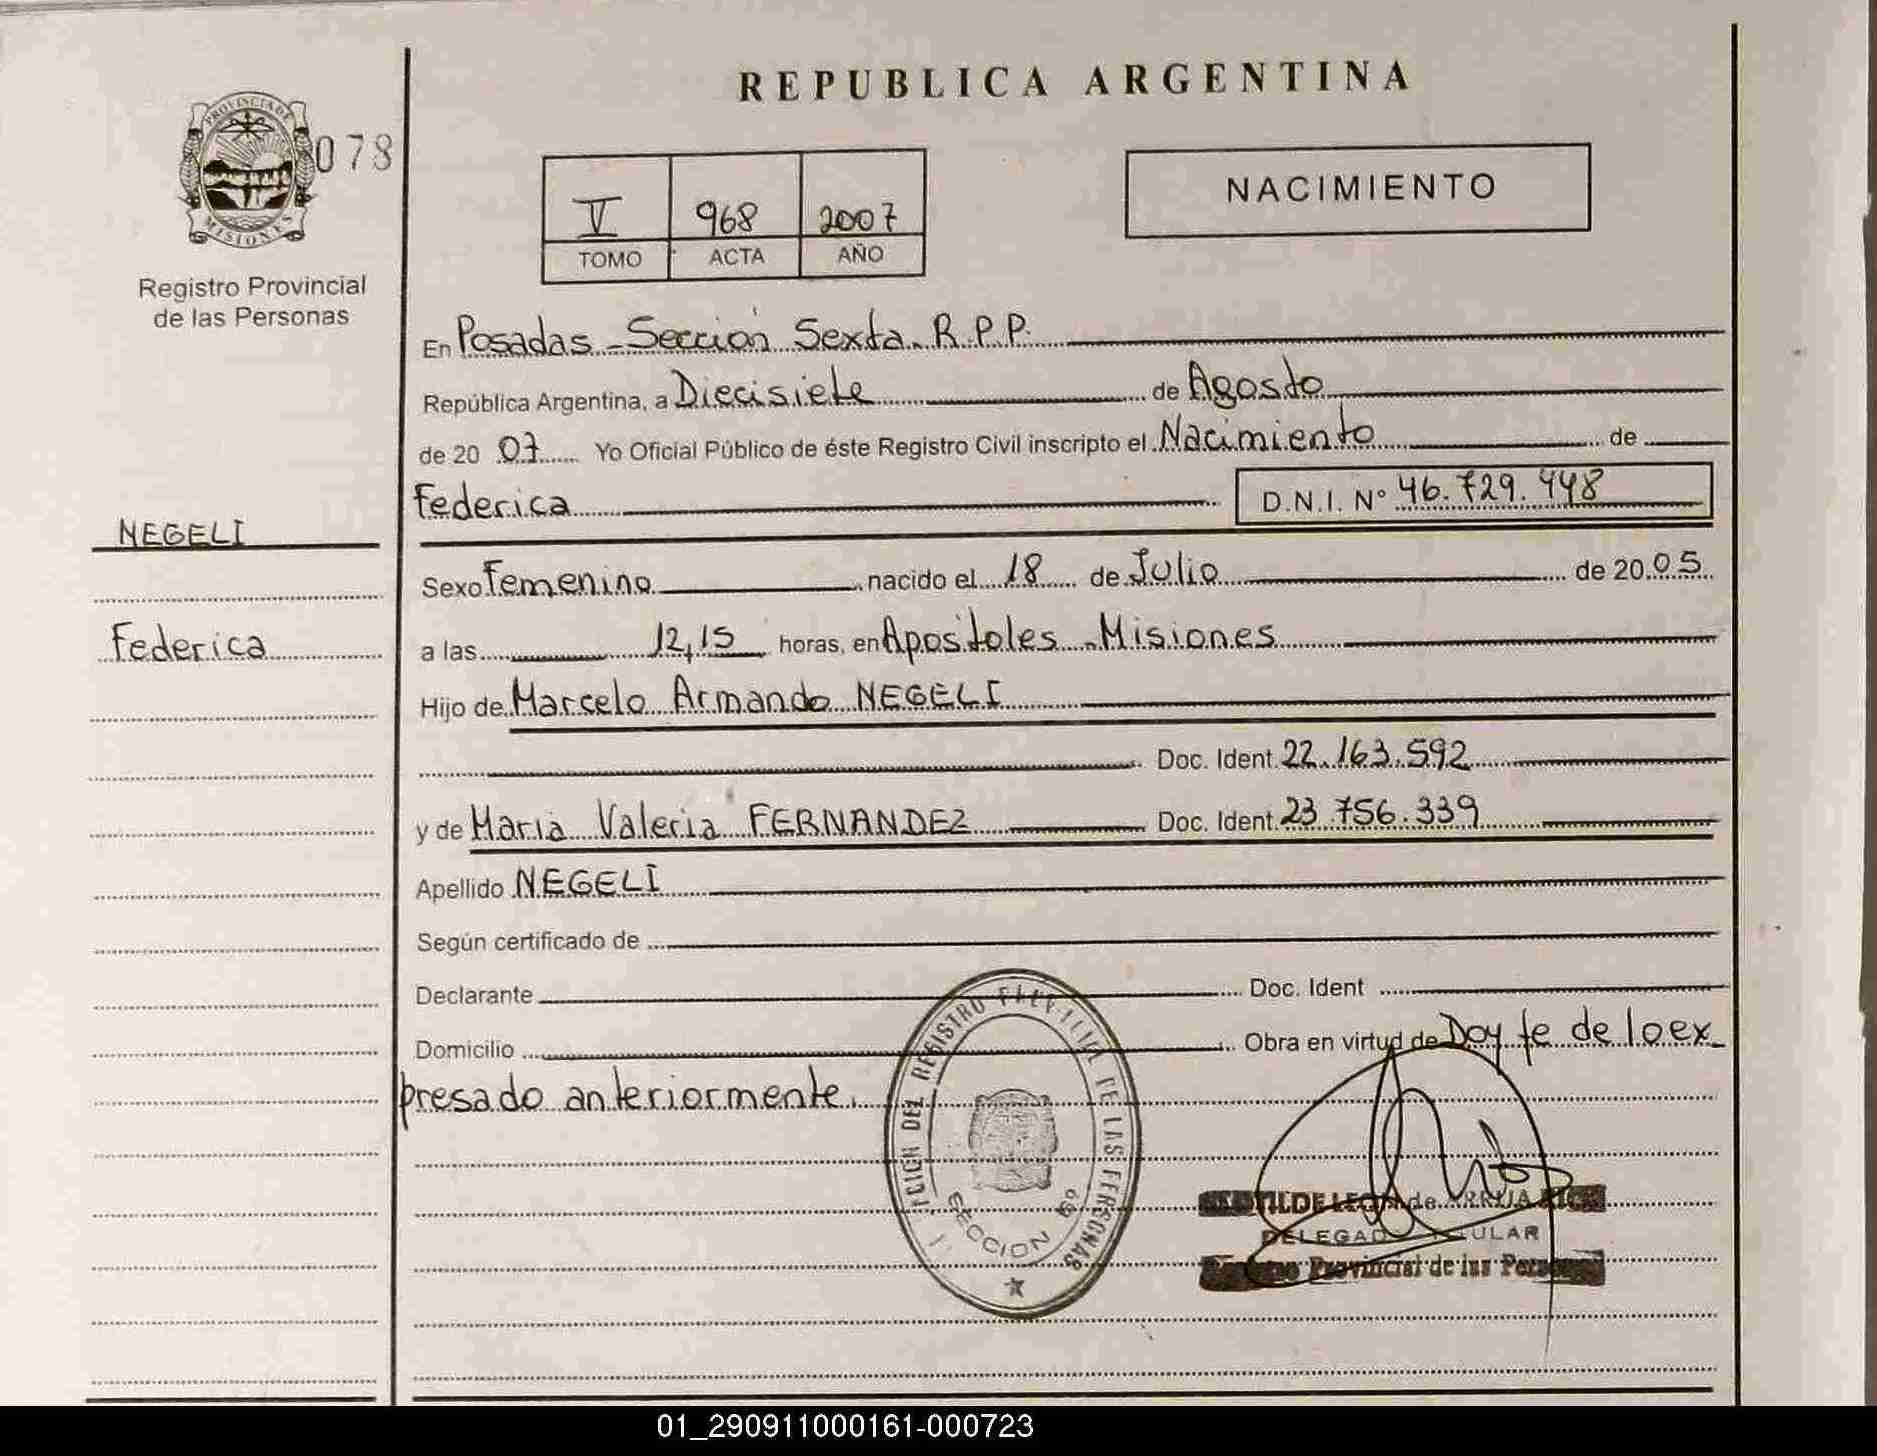 REPUBLICA ARGENTINA
PROVINCIA DE MISIONES
078
Registro Provincial
de las Personas
V 968 2007
TOMO ACTA AÑO
NACIMIENTO
En Posadas - Sección Sexta. R.P.P.
República Argentina, a Diecisiete de Agosto
de 20 07 Yo Oficial Público de éste Registro Civil inscripto el Nacimiento de
Federica D.N.I. Nº 46.729.448
NEGELI
Sexo Femenino nacido el 18 de Julio de 20 05
Federica
a las 12,15 horas, en Apostoles - Misiones
Hijo de Marcelo Armando NEGELI
Doc. Ident. 22.163.592
y de Maria Valeria FERNANDEZ Doc. Ident. 23.756.339
Apellido NEGELI
Según certificado de
Declarante Doc. Ident
Domicilio Obra en virtud de Doy fe de lo ex
presado anteriormente.
DEL REGISTRO DE LAS PERSONAS
SECCION
LEON de ARRUA
DELEGADA TITULAR
Provincial de las
01_290911000161-000723